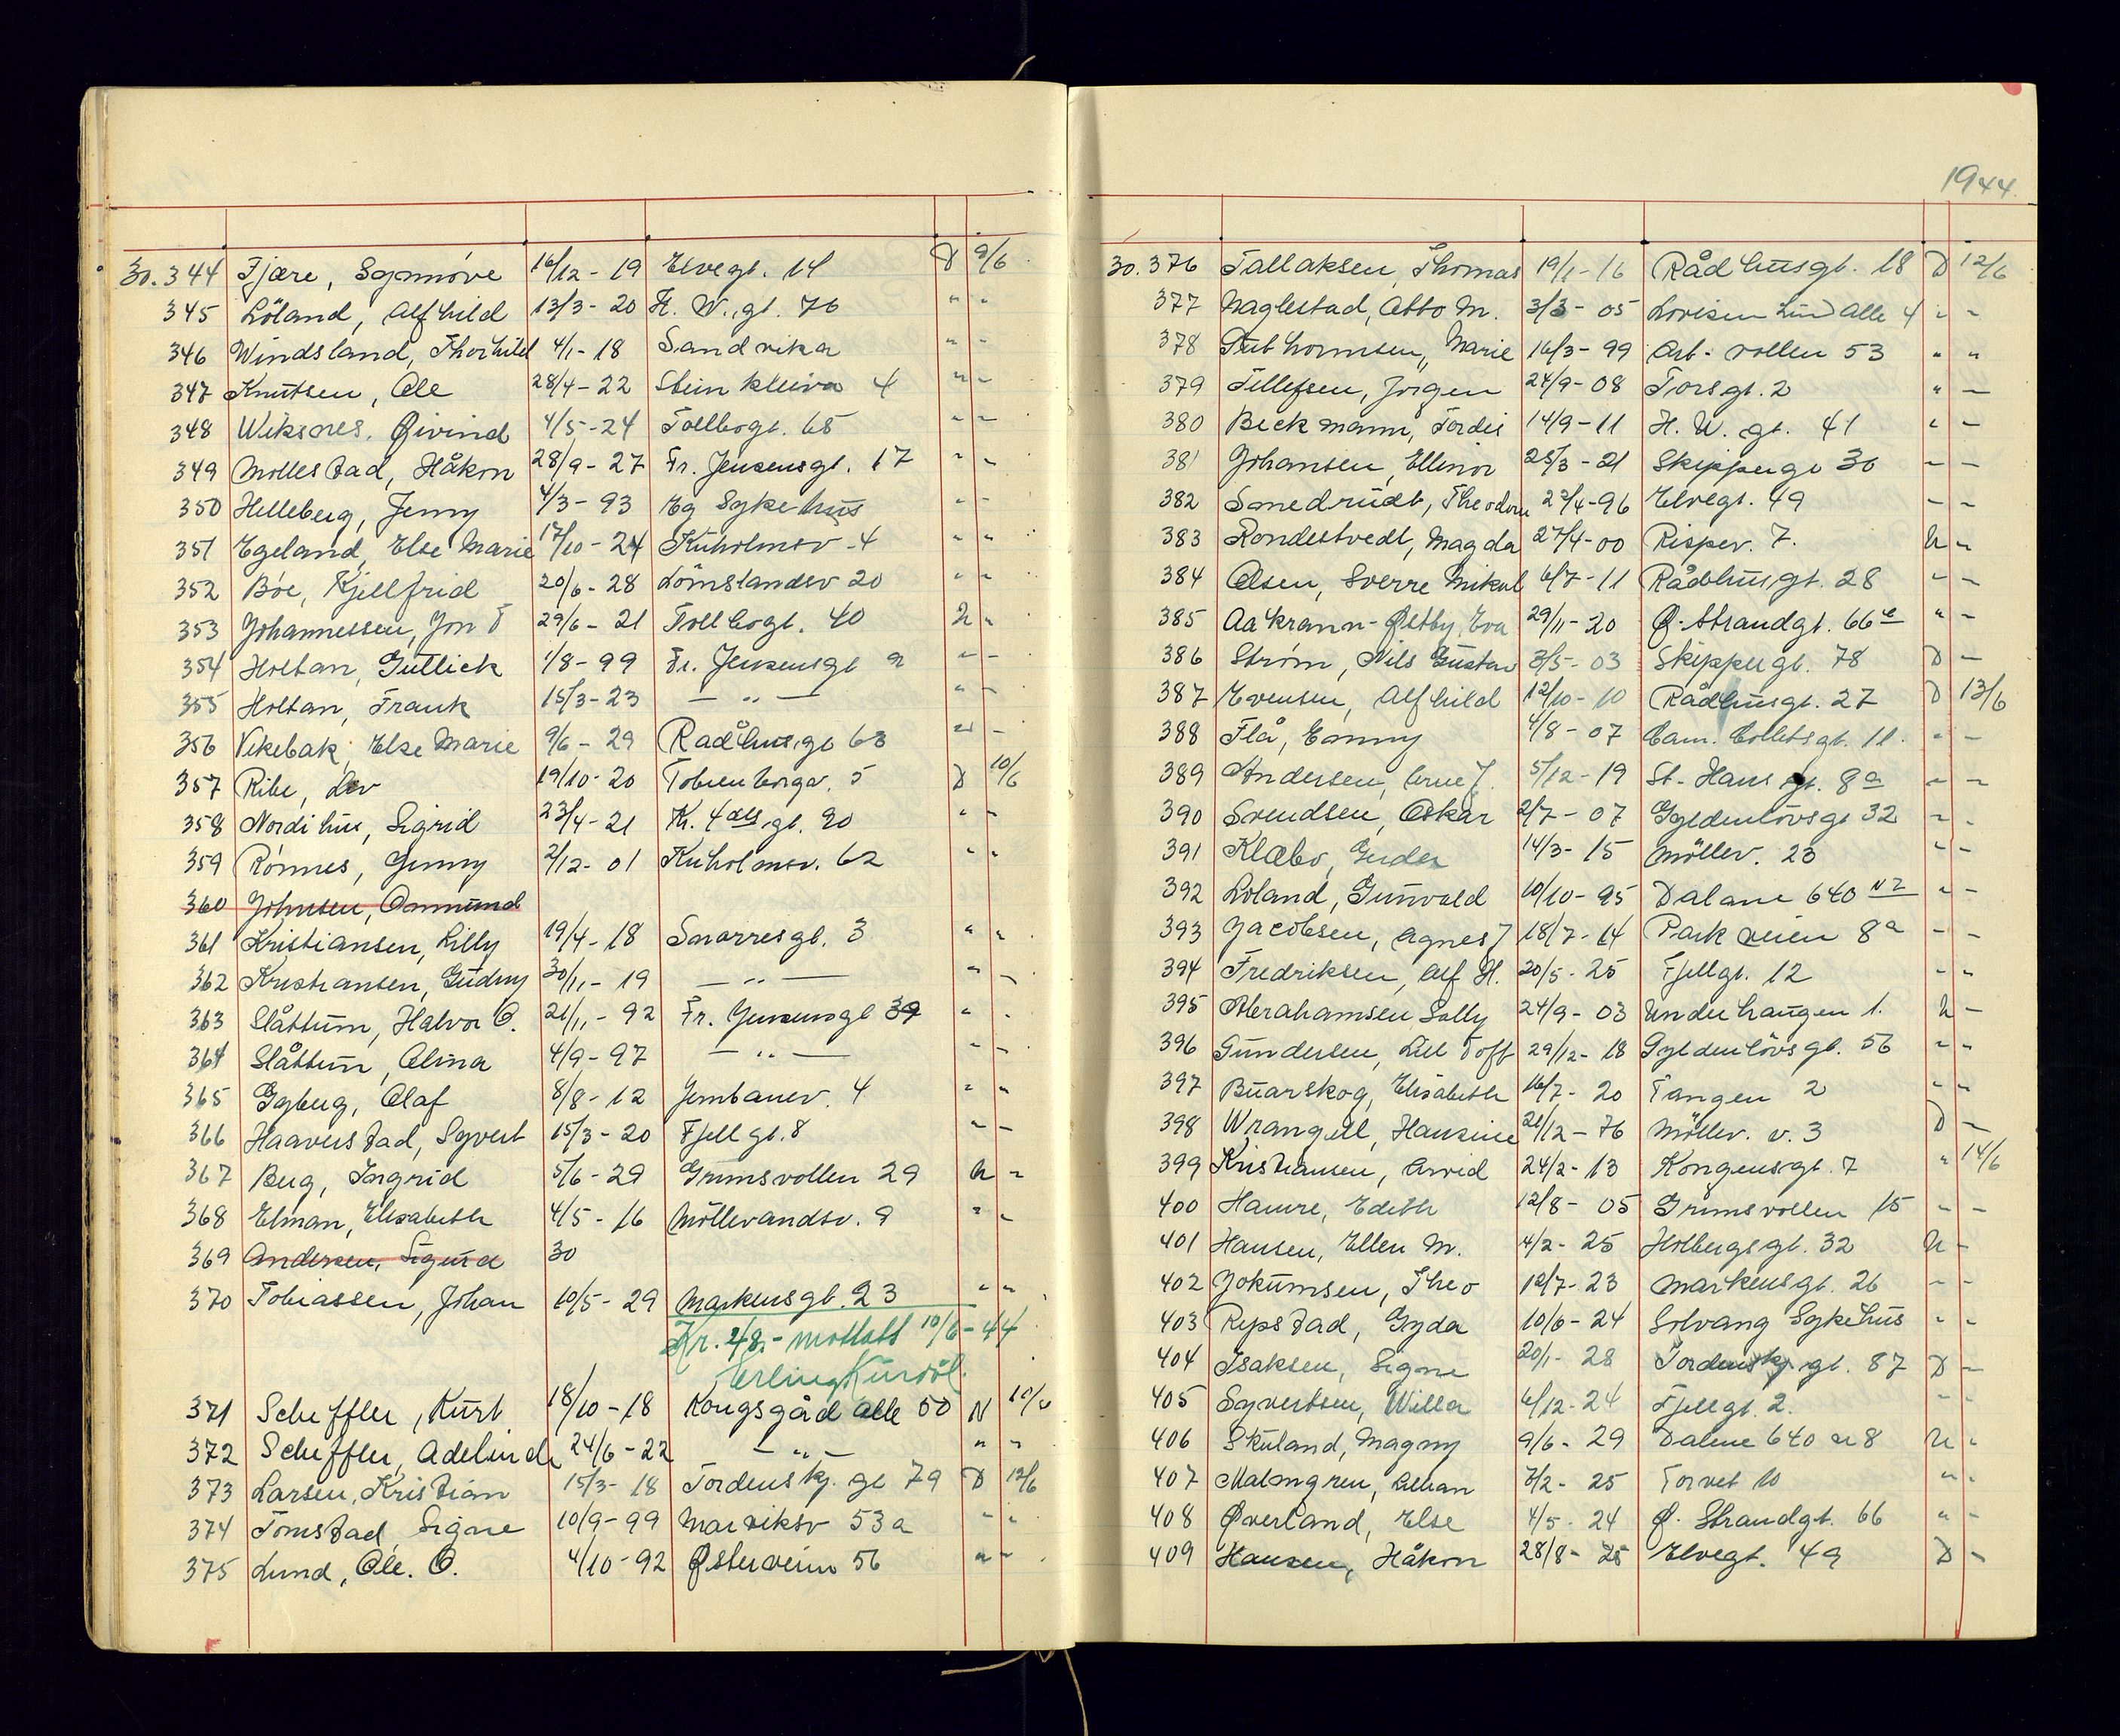 30.344 Fjære, Synnøve 16/12 - 19 Elvegt. 14 D 9/6
345 Löland, Alfhild 13/3 - 20 H. W. gt. 76 " "
346 Windsland, Thorhild 4/1 - 18 Sandvika " "
347 Knutsen, Ole 28/4 - 22 Steinkleiva 4 " "
348 Wiksnes, Øivind 4/5 - 24 Tollbogt. 68 " "
349 Mollestad, Håkon 28/9 - 27 Fr. Jensensgt. 17 " "
350 Helleberg, Jenny 4/3 - 93 Eg Sykehus " "
351 Egeland, Else Marie 17/10 - 24 Kuholmsv. 4 " "
352 Böe, Kjellfrid 20/6 - 28 Lömslandsv 20 " "
353 Johannessen, Jon 29/6 - 21 Tollbogt. 40 N "
354 Holtan, Gullick 1/8 - 99 Fr. Jensensgt 9 " "
355 Holtan, Frank 15/3 - 23 — " — " "
356 Vikebak, Else Marie 9/6 - 29 Rådhusgt 63 " "
357 Ribe, Liv 19/10 - 20 Tobienborgv. 5 D 10/6
358 Nordihus, Sigrid 23/4 - 21 Kr. 4des gt. 90 " "
359 Rönnes, Jenny 2/12 - 01 Kuholmsv. 62 " "
360 Johnsen, Osmund
361 Kristiansen, Lilly 19/4 - 18 Snorresgt. 3 " "
362 Kristiansen, Gudny 30/11 - 19 — " — " "
363 Slåttum, Halvor O. 21/11 - 92 Fr. Jensensgt 39 " "
364 Slåttum, Alma 4/9 - 97 — " — " "
365 Gyberg, Olaf 8/8 - 12 Jernbanev. 4 " "
366 Haaverstad, Syvert 15/3 - 20 Fjellgt. 8 " "
367 Berg, Ingrid 5/6 - 29 Grimsvollen 29 N "
368 Elman, Elisabeth 4/5 - 16 Möllevandsv. 9 " "
369 Andersen, Sigurd 30
370 Tobiassen, Johan 10/5 - 29 Markensgt. 23 " "
Kr. 48.- mottatt 10/6 - 44
Erling
371 Scheffler, Kurt 18/10 - 18 Kongsgård alle 50 N 10/6
372 Scheffler, Adelinde 24/6 - 22 — " — " "
373 Larsen, Kristian 15/3 - 18 Tordenskj. gt 79 D 12/6
374 Tomstad, Signe 10/9 - 99 Marviksv 53a " "
375 Lund, Ole. O. 4/10 - 92 Østerveien 56 " "
1944.
30.376 Tallaksen, Thomas 19/1 - 16 Rådhusgt. 18 D 12/6
377 Naglestad, Otto M. 3/3 - 05 Lovisen Lund alle 4 " "
378 Marie 16/3 - 99 Art. vollen 53 " "
379 Tellefsen, Jörgen 24/9 - 08 Torsgt. 2 " "
380 Beckmann, Tordis 14/9 - 11 H. W. gt. 41 " "
381 Johansen, Ellinor 25/3 - 21 Skippergt 30 " "
382 Smedrudt, Theodora 22/4 - 96 Elvegt. 49 " "
383 Rondestvedt, Magda 27/4 - 00 Rispev. 7. N "
384 Olsen, Sverre Mikal 6/7 - 11 Rådhusgt. 28 " "
385 Aakrann-Østby, Eva 29/11 - 20 Ø. Strandgt. 66 " "
386 Strøm, Nils Gustav 3/5 - 03 Skippergt. 78 D "
387 Evensen, Alfhild 12/10 - 10 Rådhusgt. 27 D 13/6
388 Flå, Emmy 4/8 - 07 Cam. Colletsgt. 11. " "
389 Andersen, Arne J. 5/12 - 19 St. Hans gt. 8a " "
390 Svendsen, Oskar 2/7 - 07 Gyldenlövsgt 32 " "
391 Klæbo, 14/3 - 15 Möllev. 23 " "
392 Loland, Gunvald 10/10 - 95 Dalane 640 " "
393 Jacobsen, Agnes J 18/7 - 14 Parkveien 8a " "
394 Fredriksen, Alf H. 20/5 - 25 Fjellgt. 12 " "
395 Abrahamsen, Solly 24/9 - 03 Underhaugen 1. N "
396 Gundersen, Lill Toft 29/12 - 18 Gyldenlövsgt. 56 " "
397 Buarskog, Elisabeth 16/7 - 20 Tangen 2 " "
398 Wrangell, Hansine 21/12 - 76 Möllev. v. 3 D "
399 Kristiansen, Arvid 24/2 - 13 Kongensgt. 7 " 14/6
400 Hamre, Edith 12/8 - 05 Grimsvollen 15 " "
401 Hansen, Ellen M. 4/2 - 25 Holbergsgt. 32 N "
402 Jokumsen, Theo 12/7 - 23 Markensgt. 26 " "
403 Repstad, Gyda 10/6 - 24 Solvang Sykehus " "
404 Isaksen, Signe 20/1 - 28 Tordenskj. gt. 87 D "
405 Syvertsen, Willa 6/12 - 24 Fjellgt. 2. " "
406 Skuland, Magny 9/6 - 29 Dalene 640 N "
407 Malmgren, Lillian 7/2 - 25 Torvet 10 " "
408 Øverland, Else 4/5 - 24 Ø. Strandgt. 66 " "
409 Hansen, Håkon 28/8 - 25 Elvegt. 49 D "